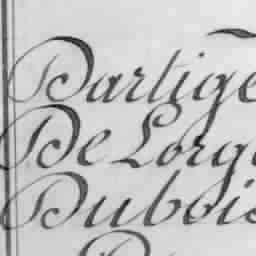 Partige
De Lorge
Dubois